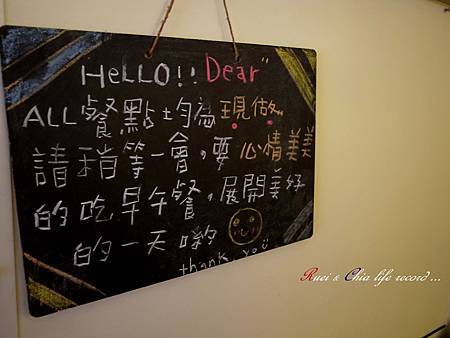 HeLLO!! Dear"
ALL餐點均為現做..
請稍等一會，要心情美美
的吃早午餐，展開美好
的一天喲
thank you
Ruei & Chia life record ...